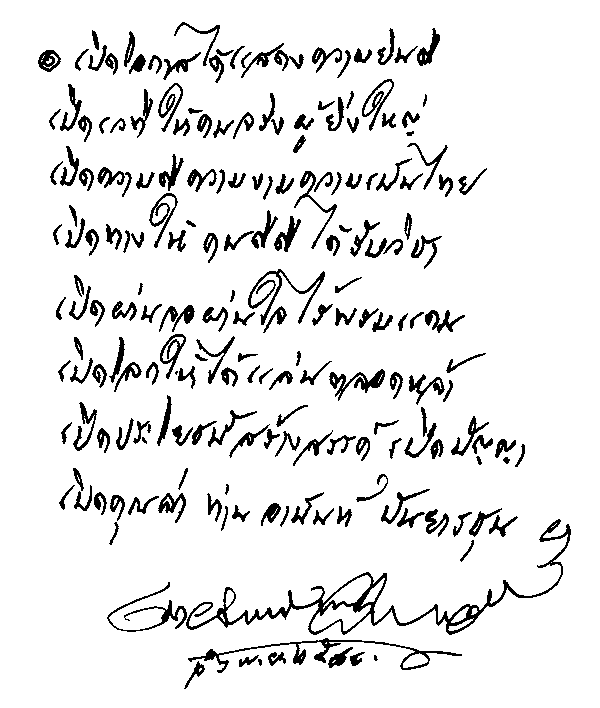 ๏ เปิดโอกาสได้แสดงความยินดี
เปิดเวที ให้คนจริง ผู้ยิ่งใหญ่
เปิดความดี ความงาม ความเป็นไทย
เปิดทางให้ คนดีดี ได้รับ
เปิดผ่านจอ ผ่านใจ ไร้พรมแดน
เปิดโลกให้ได้แล่น ตลอดหล้า
เปิดประโยชน์ สร้างสรรค์ เปิดปัญญา
เปิดคุณค่า ท่าน อานันท์ ปันยารชุน